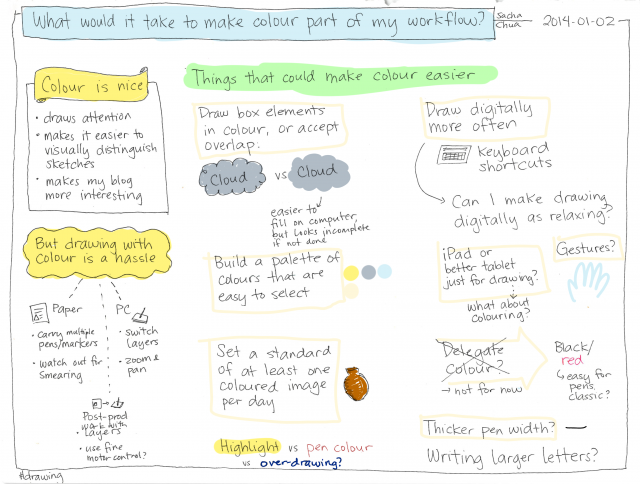 What would it take to make colour part of my workflow?
Sacha
Chua
2014-01-02
Colour is nice
• draws attention
• makes it easier to
visually distinguish
sketches
• makes my blog
more interesting
But drawing with
colour is a hassle
Paper
• Carry multiple
pens/markers
• watch out for
smearing
PC
• switch
layers
• zoom &
pan
Post-prod
work with
• Layers
• use fine
motor control?
#drawing
Things that could make colour easier
Draw box elements
in colour, or accept
overlap:
Cloud vs Cloud
easier to
fill on computer,
but looks incomplete
if not done
Build a palette of
colours that are
easy to select
Set a standard
of at least one
coloured image
per day
Highlight vs pen colour
vs over-drawing?
Draw digitally
more often
keyboard
shortcuts
Can I make drawing
digitally as relaxing?
iPad or
better tablet
just for drawing?
what about
colouring?
Gestures?
Delegate
Colour?
→ not for now
Black/
red
↳ easy for
pens,
classic?
Thicker pen width? —
Writing larger letters?